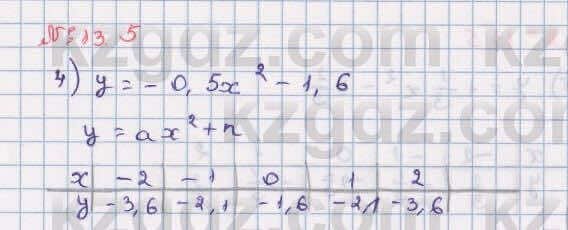 № 13. 5
4) y = - 0, 5x² - 1, 6
y = ax² + n
x -2 -1 0 1 2
y -3,6 -2,1 -1,6 -2,1 -3,6
kzgdz.com